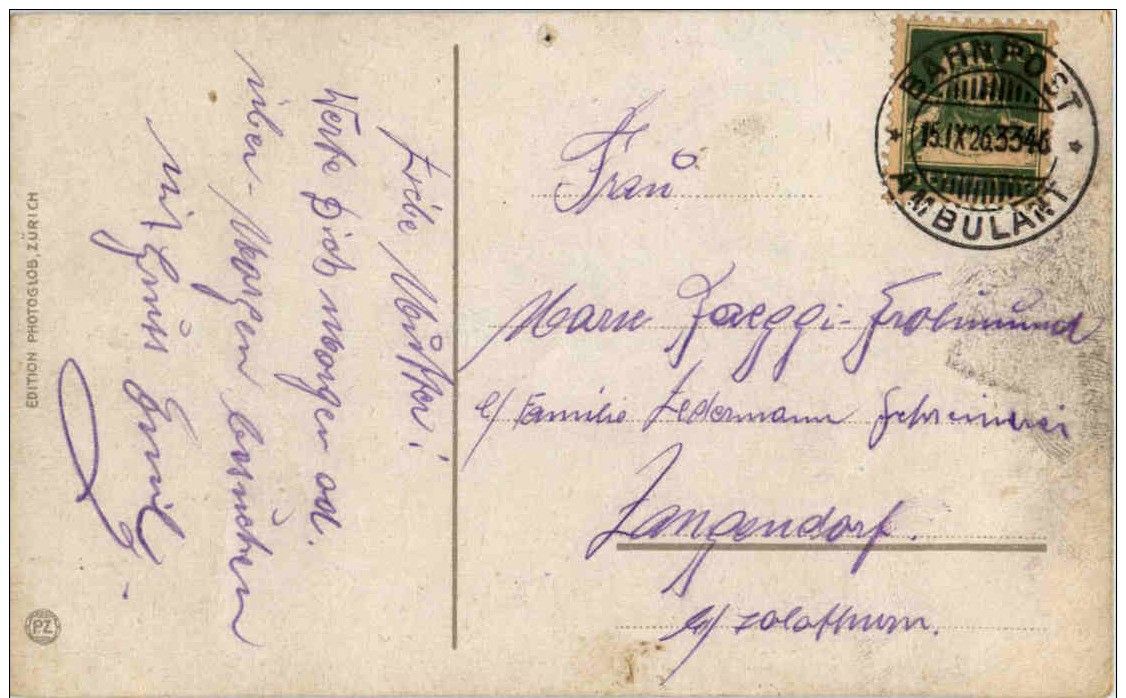 Liebe Mutter!
Werte Dich morgen od.
über-Morgen besuchen
mit Gruss Emil
EDITION PHOTOGLOB, ZÜRICH
PZ
BAHNPOST
15.IX.26.3346
AMBULANT
Frau
Marie Jaeggi-Frohmund
c/ Familie Ledermann Schreinerei
Langendorf.
b/ Solothurn.